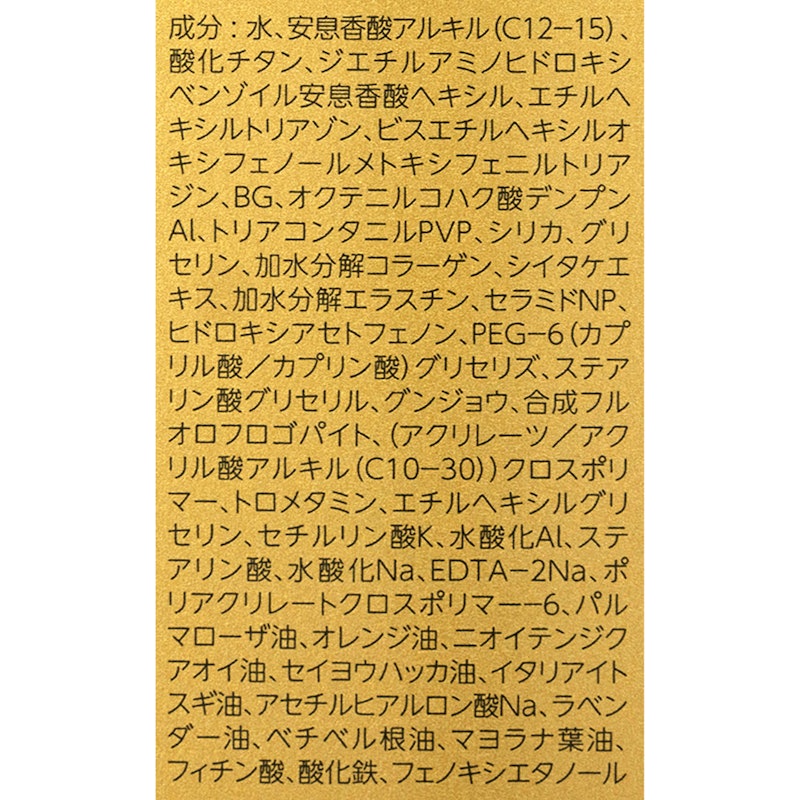 成分：水、安息香酸アルキル（C12−15）、
酸化チタン、ジエチルアミノヒドロキシ
ベンゾイル安息香酸ヘキシル、エチルヘ
キシルトリアゾン、ビスエチルヘキシルオ
キシフェノールメトキシフェニルトリア
ジン、BG、オクテニルコハク酸デンプン
Al、トリアコンタニルPVP、シリカ、グリ
セリン、加水分解コラーゲン、シイタケエ
キス、加水分解エラスチン、セラミドNP、
ヒドロキシアセトフェノン、PEG−6（カプ
リル酸／カプリン酸）グリセリズ、ステア
リン酸グリセリル、グンジョウ、合成フル
オロフロゴパイト、（アクリレーツ／アク
リル酸アルキル（C10−30））クロスポリ
マー、トロメタミン、エチルヘキシルグリ
セリン、セチルリン酸K、水酸化Al、ステ
アリン酸、水酸化Na、EDTA−2Na、ポ
リアクリレートクロスポリマー−6、パル
マローザ油、オレンジ油、ニオイテンジク
アオイ油、セイヨウハッカ油、イタリアイト
スギ油、アセチルヒアルロン酸Na、ラベン
ダー油、ベチベル根油、マヨラナ葉油、
フィチン酸、酸化鉄、フェノキシエタノール